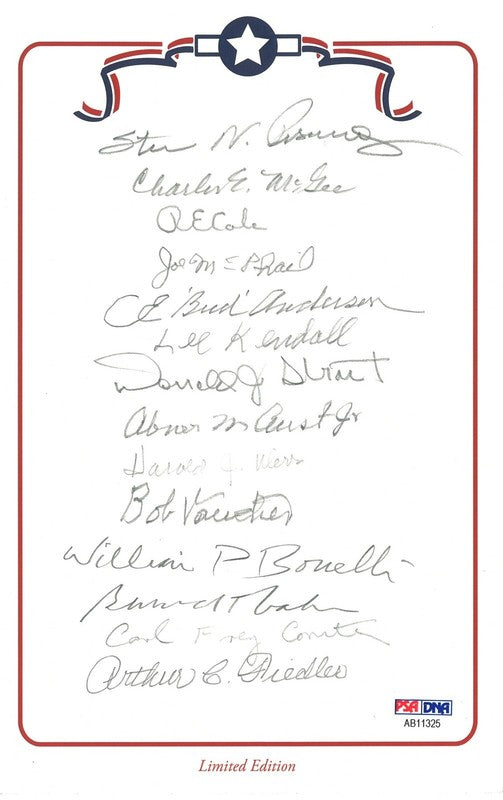 Steve N. Pisanos
Charles E. McGee
R E Cole
Joe McPhail
CE "Bud" Anderson
Lee Kendall
Donald J. Strait
Abner M Aust Jr
Harold J.
Bob Vaucher
William P Bonelli
Carl Frey
Arthur C. Fiedler
PSA DNA
AB11325
Limited Edition